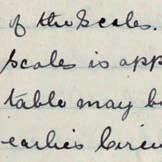 of the Scales.
scales is app
table may b
earlier Circu